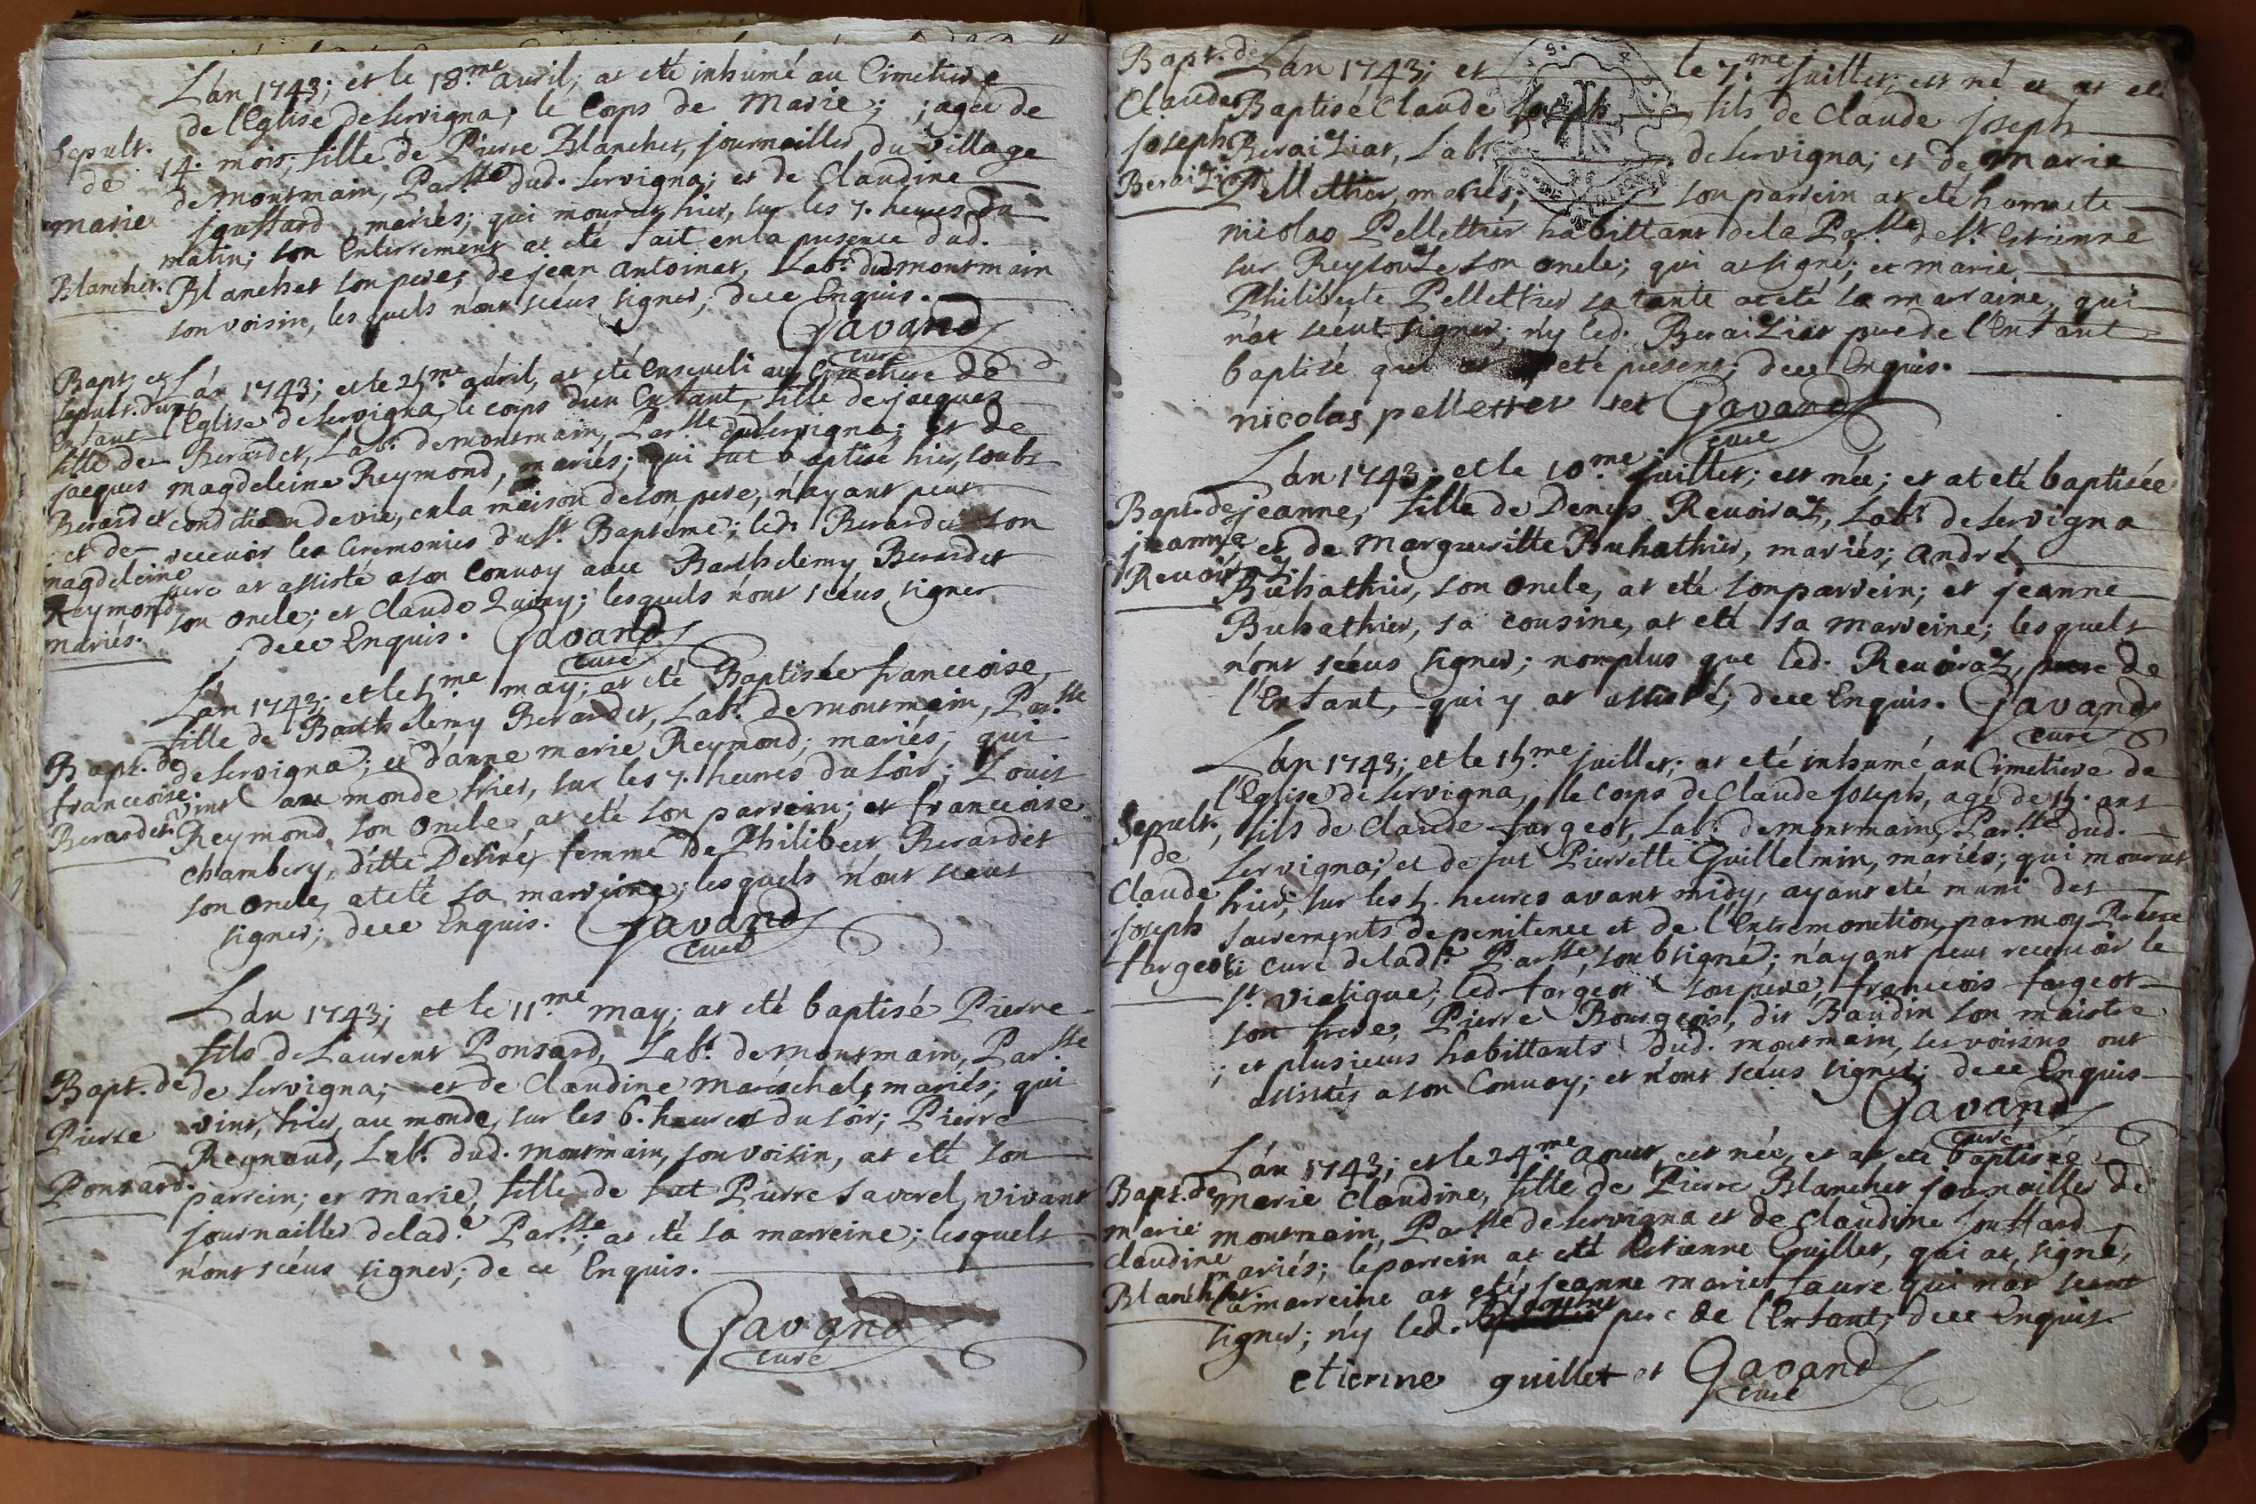 Lán 1743; et le 18.me avril; at eté inhumé au Cimetiere
de l'Eglise de Servigna, le Corps de Marie; ; agée de
14. mois; fille de Pierre Blanchet, journailler du village
de montmain, Par.sse dud. Servigna; et de Claudine
mariés; qui mourut hier, sur les 7. heures du
matin; son Enterrement at eté fait en la presence dud.
Blanchet son pere, de jean antoinat, Lab.r dud montmain
son voisin, les quels n'ont scéus signer; dece Enquis.
Sepult.
de
marie
Blanchet.
Gavand
curé
Lán 1743; et le 25.me avril, at eté Enseveli au Cimetiere de
l'Eglise de Servigna, le corps d'un Enfant, fille de jacques
Berardet, Lab.r de montmain, Par.sse dud Servigna; et de
magdeleine Reymond, mariés; qui fut baptisé hier, soubs
condition de vie, en la maison de son pere, n'ayant peut
recevoir les Ceremonies du S.t Baptéme; led. Berardet son
pere at assisté a son Convoy avec Barthelemy Berardet
son oncle; et Claude Quiny; lesquels n'ont scéus signer
; dece Enquis. Gavand
curé
Bapt. et
sepult. d'un
Enfant
fille de
jacques
Berardet
et de
magdeleine
Reymond
mariés.
Lán 1743; et le 5.me may; at eté Baptisée francoise,
fille de Barthelemy Berardet, Lab.r de montmain, Par.sse
de Servigna; et d'anne marie Reymond; mariés; qui
vint au monde hier, sur les 7. heures du soir; Louis
Reymond, son Oncle, at eté son parrein; et francoise
chambery, ditte Desiré, femme de Philibert Berardet
son oncle, at eté sa marreine; lesquels n'ont sceus
signer; dece Enquis. Gavand
curé
Bapt. de
francoise
Berardet.
Lán 1743; et le 11.me may; at eté baptisé Pierre
fils de Laurent Ponsard, Lab.r de montmain, Par.sse
de Servigna; et de Claudine maréchal, mariés; qui
vint, hier, au monde, sur les 6. heures du soir; Pierre
Reynaud, Lab.r dud. montmain, son voisin, at eté son
parrein; et marie, fille de fut Pierre Saverel, vivant
journailler de lad.e Par.sse; at eté sa marreine; lesquels
n'ont scéus signer; de ce Enquis.
Bapt. de
Pierre
Ponsard.
Gavand
curé
Bapt. de
Claude
Joseph
Beraiziat
Lán 1743; et le 7.me Juillet; est né et at eté
Baptisé Claude Joseph fils de Claude Joseph
Beraiziat, Lab.r de Servigna; et de Marie
Pellethier, mariés; son parrein at eté honnete
nicolas Pellethier habittant de la Par.sse de S.t Estienne
sur Reysouze son oncle; qui at signé; et marie
Philiberte Pellethier sa tante at eté sa marraine, qui
n'at scéut signer; n'y led. Beraiziat pere de l'Enfant
baptisé qui at eté present; dece Enquis.
nicolas pelletier Gavand
curé
Lán 1743; et le 10.me Juillet; est née; et at eté baptisée
jeanne, fille de Denys Revoiraz, Lab.r de Servigna
et de Margueritte Buhathier, mariés; André
Buhathier, son oncle, at eté son parrein; et jeanne
Buhathier, sa cousine, at eté sa marreine; lesquels
n'ont scéus signer; nomplus que led. Revoiraz, pere de
l'Enfant, qui y at assisté; dece Enquis. Gavand
curé
Bapt. de
jeanne
Revoiraz.
Lán 1743; et le 15.me Juillet; at eté inhumé au Cimetiere de
l'Eglise de Servigna, le Corps de Claude Joseph, agé de 15. ans
fils de Claude fargeot, Lab.r de montmain, Par.sse dud.
Servigna; et de fut Pierrette Guillelmin, mariés; qui mourut
hier, sur les 5. heures avant midy, ayant eté muni des
sacrements de penitence et de l'Extremonction, par moy Prétre
et curé de lad.te Par.sse, soubsigné; n'ayant peut recevoir le
S.t Viatique; led. fargeot son pere, francois fargeot
son frere, Pierre Bourgeois, dit Baudin son maistre
; et plusieurs habittants dud. montmain, ses voisins ont
assistés a son Convoy; et n'ont scéus signer; dece Enquis
Gavand
curé
Sepult.
de
Claude
Joseph
fargeot
Lán 1743; et le 24.me aoust, est née, et at eté baptisée
marie Claudine, fille de Pierre Blanchet journailler de
montmain, Par.sse de Servigna et de Claudine
mariés; le parrein at eté Estienne Guillet, qui at signé,
la marreine at eté, jeanne marie faure qui n'at sceut
signer; n'y led. Blanchet pere de l'Enfant; dece Enquis.
etienne guillet Gavand
curé
Bapt. de
marie
Claudine
Blanchet